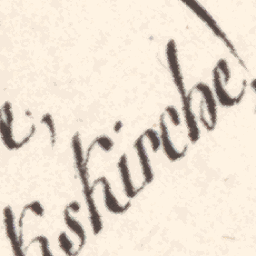 e,
kskirche,